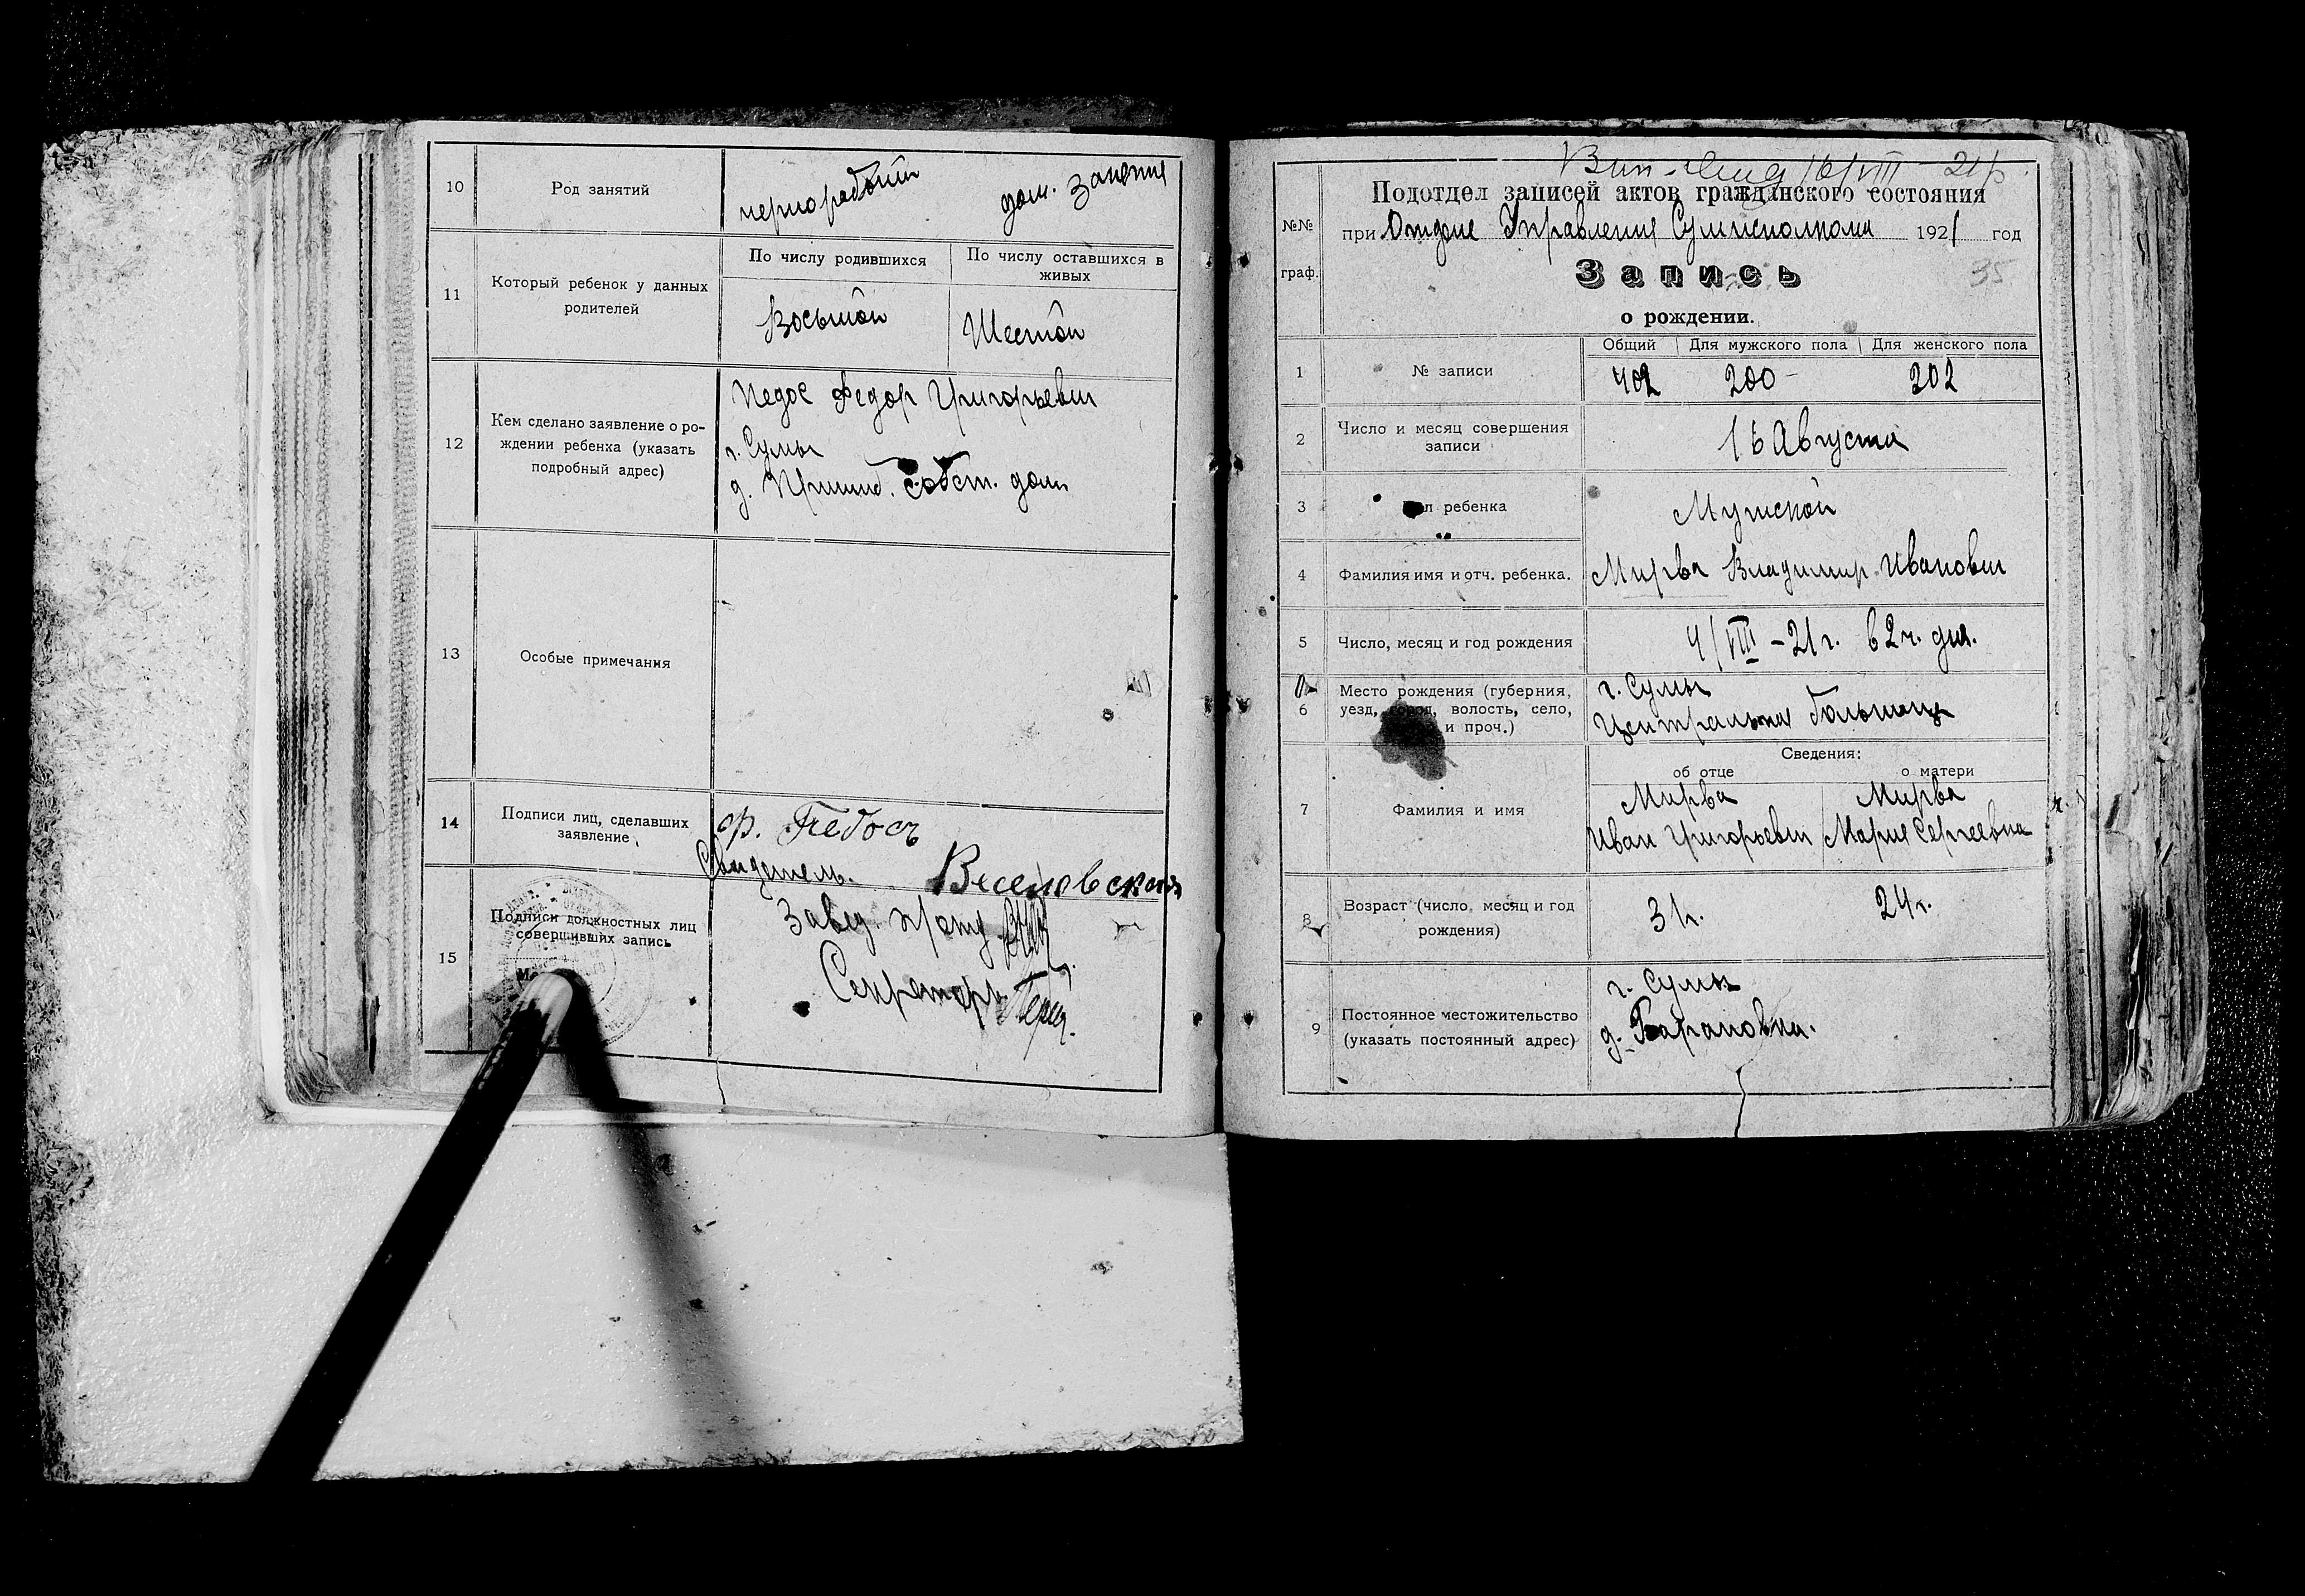 10
Род занятий
чернорабочий
дом. занятия
11
Который ребенок у данных
родителей
По числу родившихся
По числу оставшихся в
живых
Восьмой
Шестой
12
Кем сделано заявление о ро-
ждении ребенка (указать
подробный адрес)
Педос Федор Григорьевич
г. Сумы
д. собст. дом
13
Особые примечания
14
Подписи лиц, сделавших
заявление
ф. Педось
Свидетель.
Веселовская
15
Подписи должностных лиц
совершивших запись
Завед. п/отд.
Секретарь
16/VIII 21 р.
Подотдел записей актов гражданского состояния
№№
граф.
при Отделе Управления Сумисполкома 1921 год
Запись
35
о рождении.
1
№ записи
Общий
Для мужского пола
Для женского пола
402
200
202
2
Число и месяц совершения
записи
16 Августа
3
ребенка
Мужской
4
Фамилия имя и отч. ребенка.
Мирва Владимир Иванович
5
Число, месяц и год рождения
4/VIII – 21 г. в 2 ч. дня.
6
Место рождения (губерния,
уезд, город, волость, село,
и проч.)
г. Сумы
Центральная больница
7
Фамилия и имя
Сведения:
об отце
о матери
Мирва
Иван Григорьевич
Мирва
Мария Сергеевна
8
Возраст (число, месяц и год
рождения)
31 г.
24 г.
9
Постоянное местожительство
(указать постоянный адрес)
г. Сумы
д. Барановка.